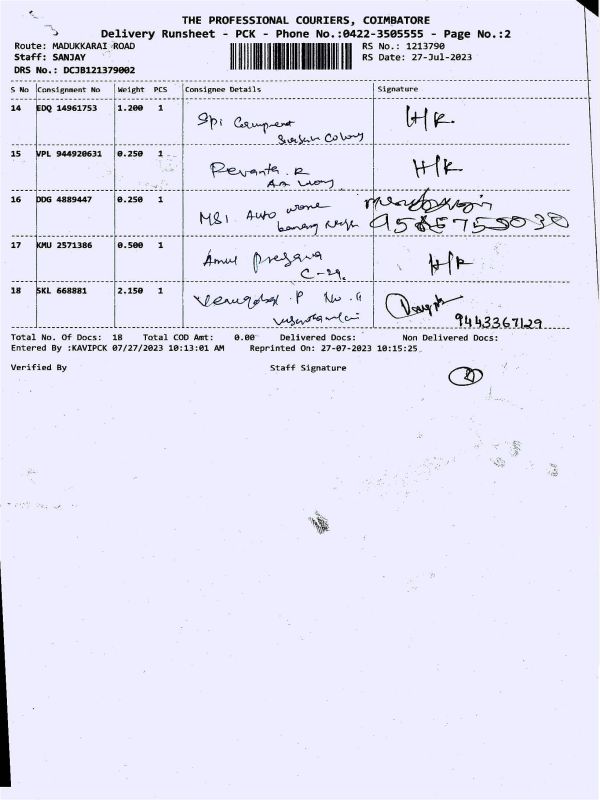 THE PROFESSIONAL COURIERS, COIMBATORE
Delivery Runsheet - PCK - Phone No.:0422-3505555 - Page No.:2
Route: MADUKKARAI ROAD RS No.: 1213790
Staff: SANJAY RS Date: 27-Jul-2023
DRS No.: DCJB121379002
S No Consignment No Weight PCS Consignee Details Signature
14 EDQ 14961753 1.200 1
Colony
H/R
15 VPL 944920631 0.250 1
Revanta R
H/R
16 DDG 4889447 0.250 1
MSI Auto
17 KMU 2571386 0.500 1
Amul
C-29.
H/R
18 SKL 668881 2.150 1
9443367129
Total No. Of Docs: 18 Total COD Amt: 0.00 Delivered Docs: Non Delivered Docs:
Entered By :KAVIPCK 07/27/2023 10:13:01 AM Reprinted On: 27-07-2023 10:15:25
Verified By Staff Signature